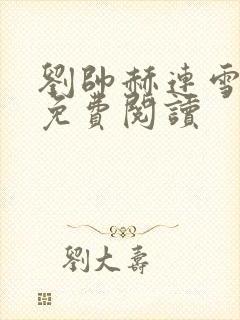 劉帥赫連雪
免費閱讀
劉大壽